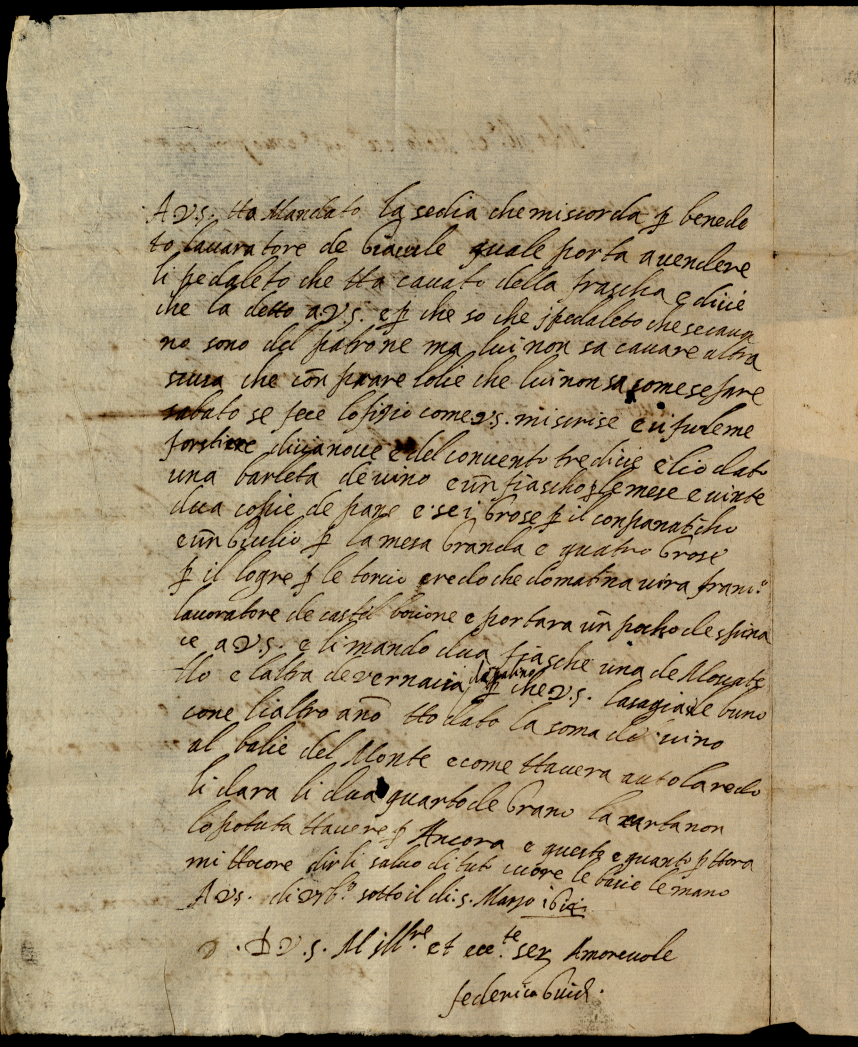 A V.S. tto Mandato la sedia che mi scorda p benede
to lavaratore de quale porta a vendere
li pedaleto che tto cavato della fraschia e dicie
che la detto a V.S. e p che so che j pedaleto che se cava
no sono del patrone ma lui non sa cavare altra
che lui non sa come se fare
sabato se fece lofizio come V.S. mi scrise e
forstiere e del convento tredicie e lio dato
una barleta de vino e un fiascho p le mese e vinte
dua copie de pane e sei Grose p il conpanaticho
e un Giulio p la mesa Granda e quatro Grose
p il logre p le torcie credo che domatina vira franc.o
lavoratore de castel bocione e portara un pocho de spina
ce a V.S. e li mando dua fiasche una de Moscate
llo e laltra de vernacia p che V.S. lasagia se le bona
come li altro ano tto dato la soma de vino
al balie del Monte e come ttavera auto la
li dara li dua quarto de Grano la carta non
lo potuta ttavere p Ancora e questo e quanto p ttora
mi ttocore dirli salvo di tut cuore le bacie le mano
A V.S. di sotto il di 5 Marzo
D V.S. M Ill.re et ecc.te ser Amorevole
federico Guidi.